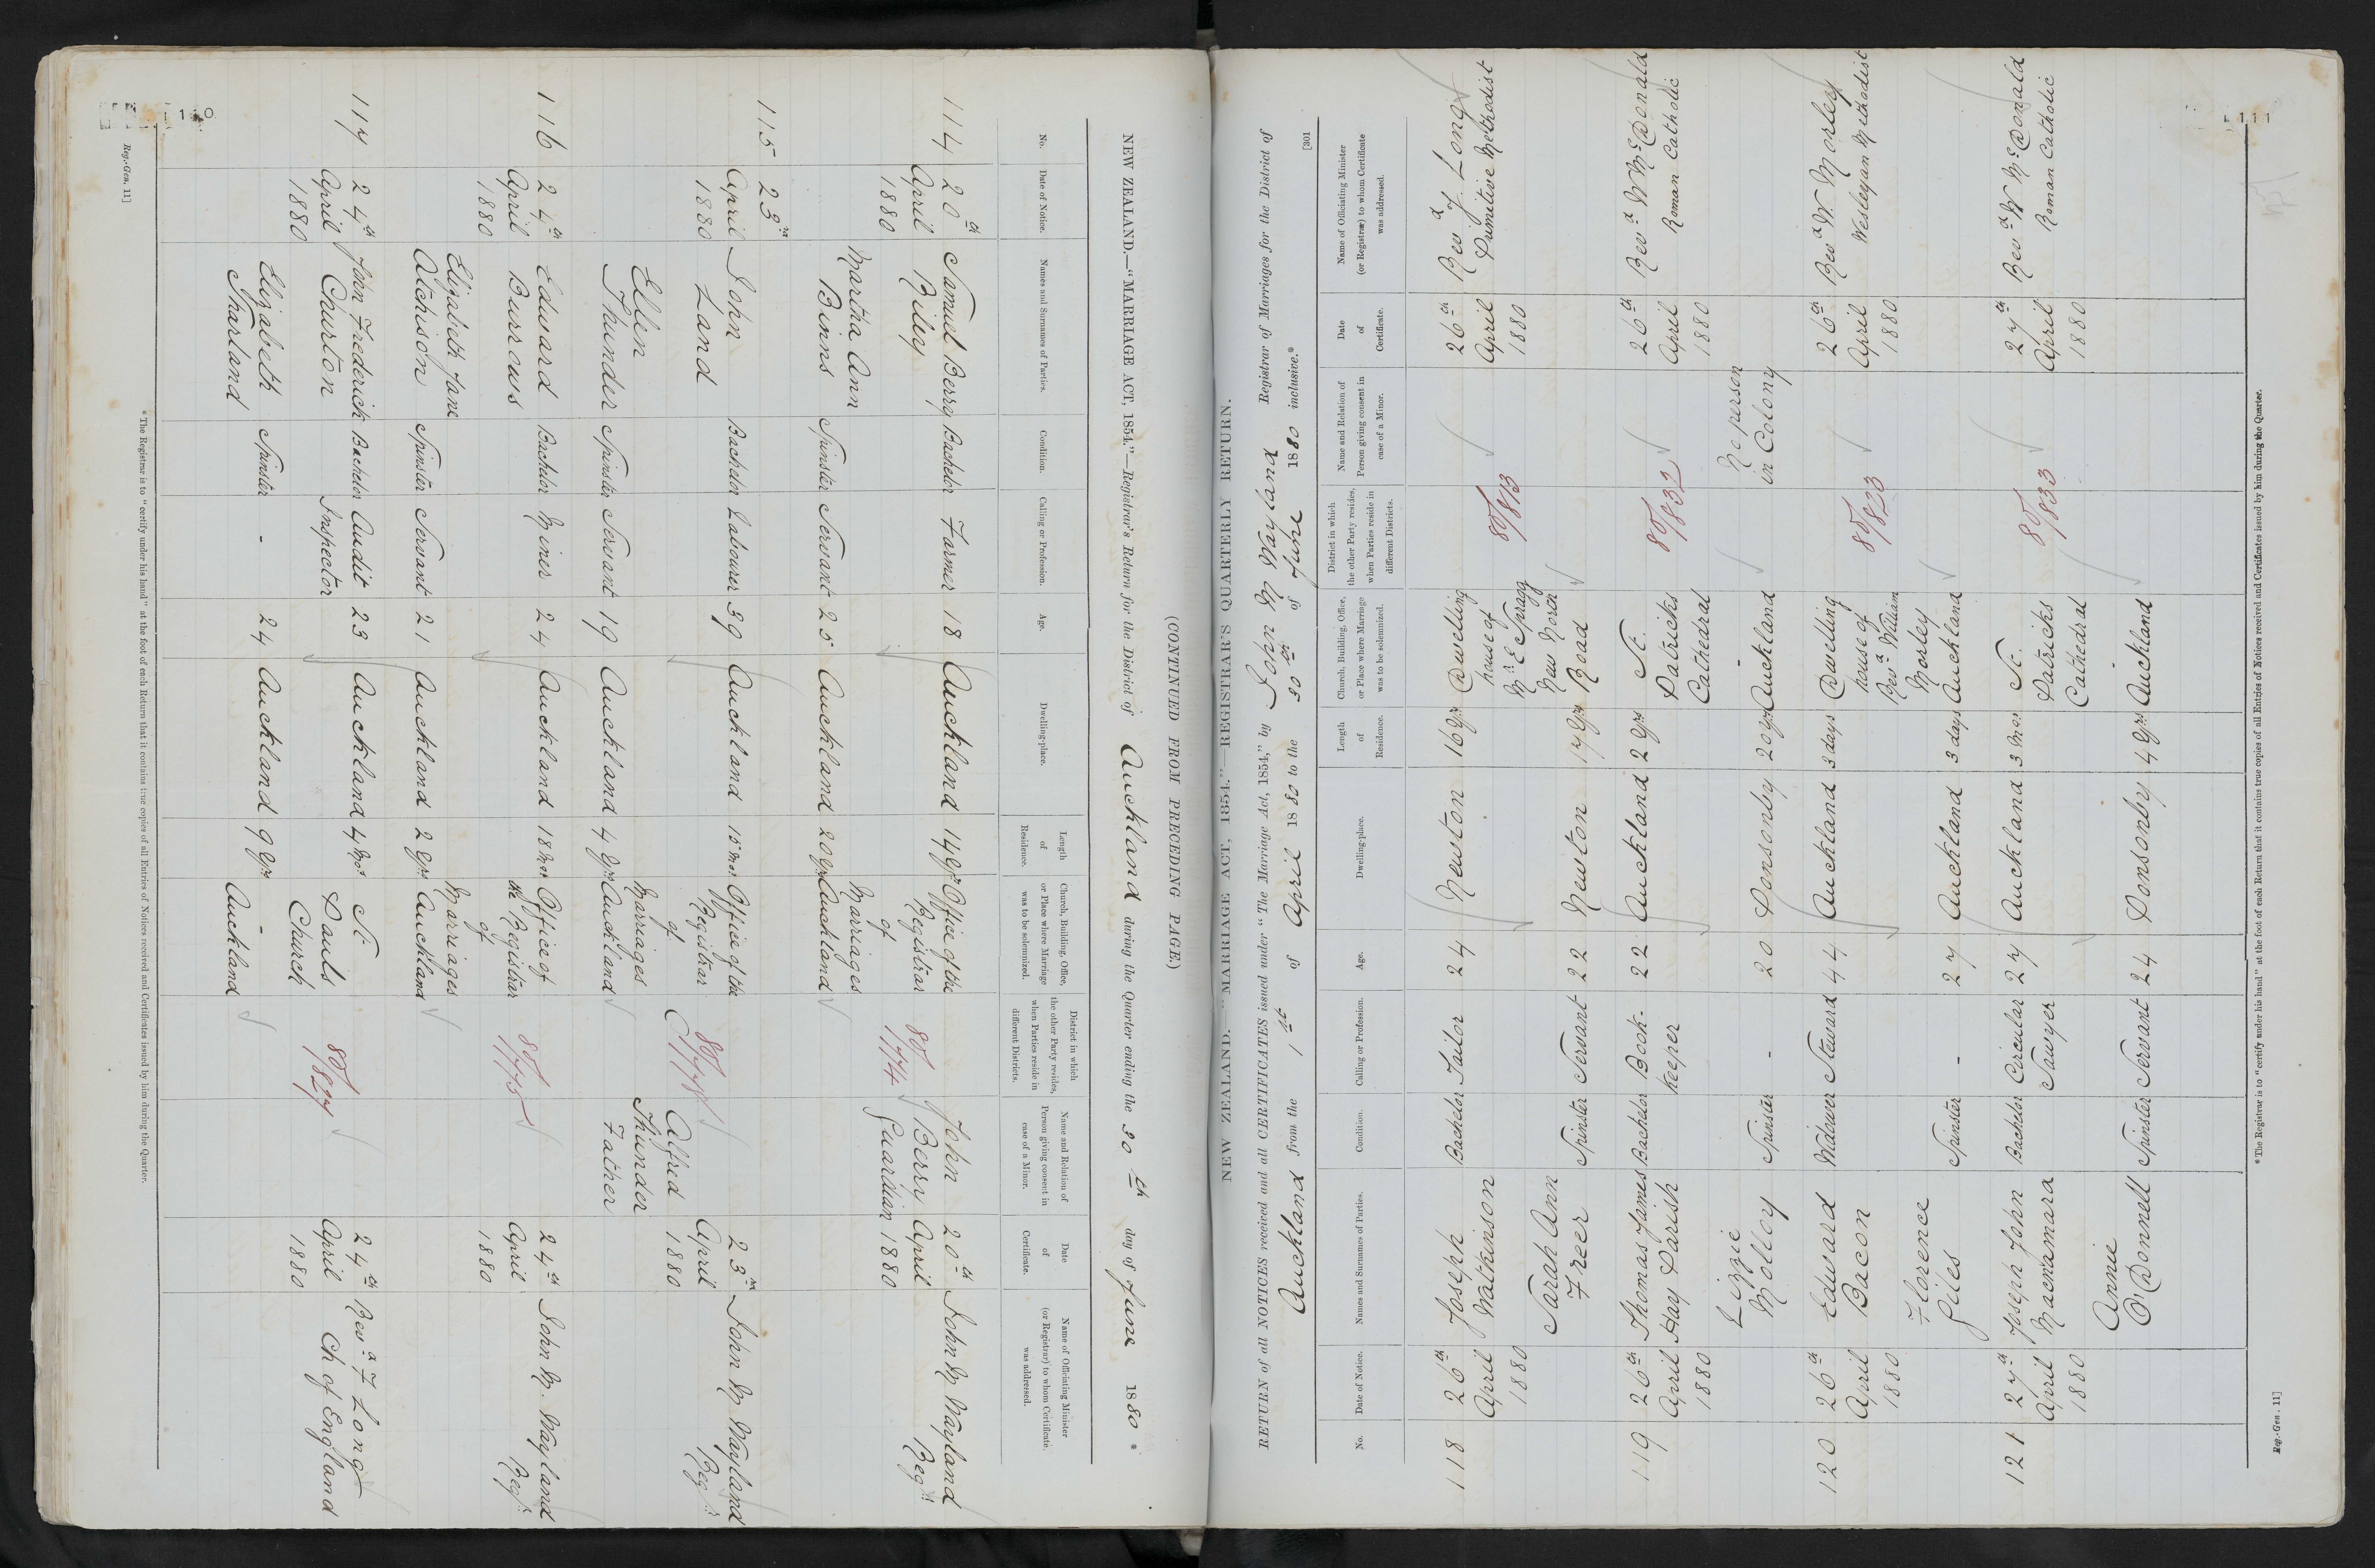 110
NEW ZEALAND.—"MARRIAGE ACT, 1854."—Registrar's Return for the District of Auckland during the Quarter ending the 30th day of June 1880 *
(CONTINUED FROM PRECEDING PAGE.)
No.
Date of Notice.
Names and Surnames of Parties.
Condition.
Calling or Profession.
Age.
Dwelling-place.
Length of Residence.
Church, Building, Office, or Place where Marriage was to be solemnized.
District in which the other Party resides, when Parties reside in different Districts.
Name and Relation of Person giving consent in case of a Minor.
Date of Certificate.
Name of Officiating Minister (or Registrar) to whom Certificate was addressed.
114 20th April 1880
Samuel Berry Riley Bachelor Farmer 18 Auckland 14 yrs
Martha Ann Binns Spinster Servant 25 Auckland 20 yrs
Office of the Registrar of Marriages Auckland
80/774
John Berry Guardian
20th April 1880
John M Wayland Regr.
115 23rd April 1880
John Land Bachelor Labourer 39 Auckland 15 mos
Ellen Thunder Spinster Servant 19 Auckland 4 yrs
Office of the Registrar of Marriages Auckland
Alfred Thunder Father
23rd April 1880
John M Wayland Regr.
116 24th April 1880
Edward Burrows Bachelor Miner 24 Auckland 18 mos
Elizabeth Jane Atchison Spinster Servant 21 Auckland 2 yrs
Office of the Registrar of Marriages Auckland
80/775
24th April 1880
John M. Wayland Regr.
117 24th April 1880
John Frederick Churton Bachelor Audit Inspector 23 Auckland 4 mos
Elizabeth Tharland Spinster - 24 Auckland 9 yrs
St. Pauls Church - Auckland
80/827
24th April 1880
Revd F Long Ch of England
* The Registrar is to "certify under his hand" at the foot of each Return that it contains true copies of all Entries of Notices received and Certificates issued by him during the Quarter.
Reg.-Gen. 11]
111
NEW ZEALAND.—"MARRIAGE ACT, 1854."—REGISTRAR'S QUARTERLY RETURN.
RETURN of all NOTICES received and all CERTIFICATES issued under "The Marriage Act, 1854," by John M Wayland Registrar of Marriages for the District of
Auckland from the 1st of April 1880 to the 30th of June 1880 inclusive.*
[301
No.
Date of Notice.
Names and Surnames of Parties.
Condition.
Calling or Profession.
Age.
Dwelling-place.
Length of Residence.
Church, Building, Office, or Place where Marriage was to be solemnized.
District in which the other Party resides, when Parties reside in different Districts.
Name and Relation of Person giving consent in case of a Minor.
Date of Certificate.
Name of Officiating Minister (or Registrar) to whom Certificate was addressed.
118 26th April 1880
Joseph Watkinson Bachelor Tailor 24 Newton 16 yrs
Sarah Ann Freer Spinster Servant 22 Newton 17 yrs
Dwelling house of Mr E Spragg New North Road
80/813
26th April 1880
Revd J. Long Primitive Methodist
119 26th April 1880
Thomas James Hay Parish Bachelor Book-keeper 22 Auckland 2 yrs
Lizzie Molloy Spinster - 20 Ponsonby 20 yrs
St. Patricks Cathedral - Auckland
80/832
No person in Colony
26th April 1880
Revd W McDonald Roman Catholic
120 26th April 1880
Edward Bacon Widower Steward 44 Auckland 3 days
Florence Giles Spinster - 27 Auckland 3 days
Dwelling house of Revd William Morley Auckland
80/823
26th April 1880
Revd W. Morley Wesleyan Methodist
121 27th April 1880
Joseph John Macnamara Bachelor Circular Sawyer 27 Auckland 3 mos
Annie O'Donnell Spinster Servant 24 Ponsonby 4 yrs
St. Patricks Cathedral - Auckland
80/833
27th April 1880
Revd W McDonald Roman Catholic
* The Registrar is to "certify under his hand" at the foot of each Return that it contains true copies of all Entries of Notices received and Certificates issued by him during the Quarter.
Reg.-Gen. 11]